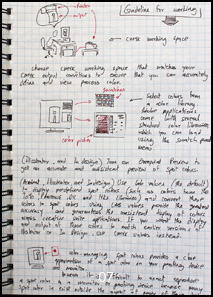 Guideline for working
output
correct working space
choose correct working space that matches your
correct output conditions to ensure that you can accurately
define and view process color.
Swatches
Select colors from
a color library.
Adobe applications
come with several
standard color libraries
which you can load
using the swatch panel
menu.
color picker
(Illustrator, and In design) Turn on Overprint Preview to
get an accurate and consistent preview of spot colors.
Illustrator, and In design) Use Lab values (the default)
to display predefined spot colors (such as colors from the
TOYO, PANTONE, DIC, and HKS libraries) and convert these
colors to spot colors. Using Lab values provides the greatest
accuracy and guarantees the consistent display of colors
across creative suite applications. If you want the display
and output of these colors to match earlier versions of
Illustrator or In Design, use CMYK values instead.
color-managing spot colors provides a close
approximation of a spot color on your proofing device
and monitor.
107
a spot color on a monitor or proofing device because